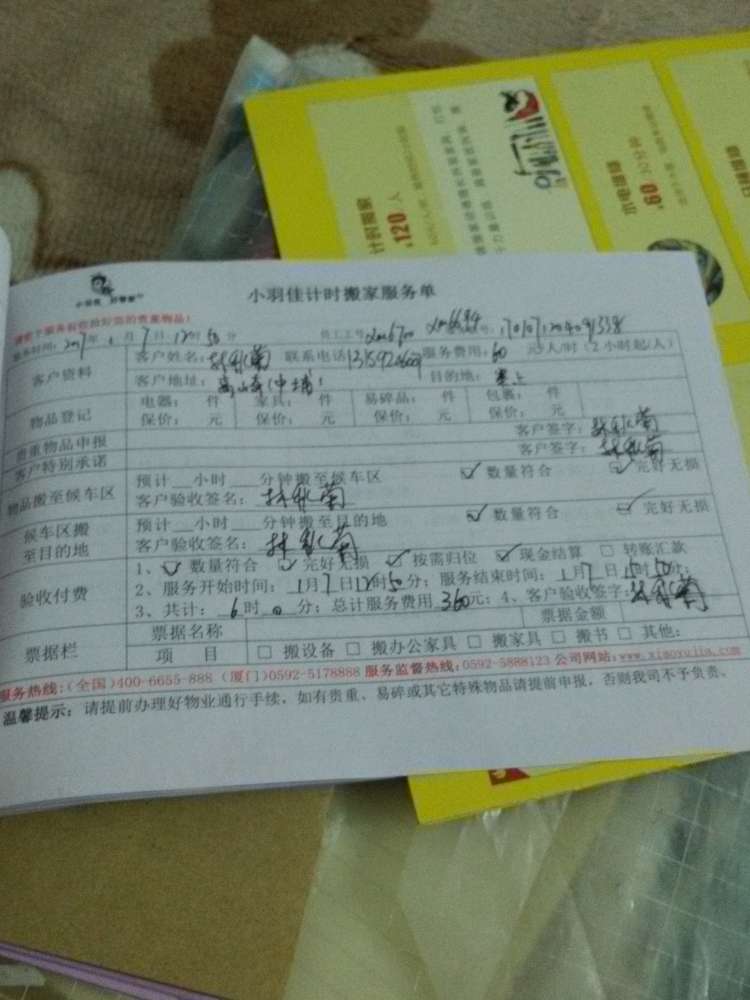 计时搬家
120/人
水电维修
60/30分钟
小羽佳 好管家
小羽佳计时搬家服务单
请在服务前收拾好您的贵重物品!
服务时间: 2017年 1月7日12时50分 员工工号
客户资料 客户姓名: 林秋菊 联系电话 服务费用: 60 元/人/时(2小时起/人)
客户地址: 目的地:
物品登记 电器: 件 家具: 件 易碎品: 件 包裹: 件
保价: 元 保价: 元 保价: 元 保价: 元
贵重物品申报 客户签字: 林秋菊
客户特别承诺 客户签字: 林秋菊
物品搬至候车区 预计 小时 分钟搬至候车区 数量符合 完好无损
客户验收签名: 林秋菊
候车区搬至目的地 预计 小时 分钟搬至目的地 数量符合 完好无损
客户验收签名: 林秋菊
验收付费 1、 数量符合 完好无损 按需归位 现金结算 转账汇款
2、服务开始时间: 1月7日12时50分; 服务结束时间: 1月7日15时50分;
3、共计: 6时0分; 总计服务费用 360元; 4、客户验收签字: 林秋菊
票据栏 票据名称 票据金额
项 目 搬设备 搬办公家具 搬家具 搬书 其他:
服务热线:(全国)400-6655-888 (厦门)0592-5178888 服务监督热线:0592-5888123 公司网站:www.xiaoyujia.com
温馨提示: 请提前办理好物业通行手续, 如有贵重、易碎或其它特殊物品请提前申报, 否则我司不予负责。